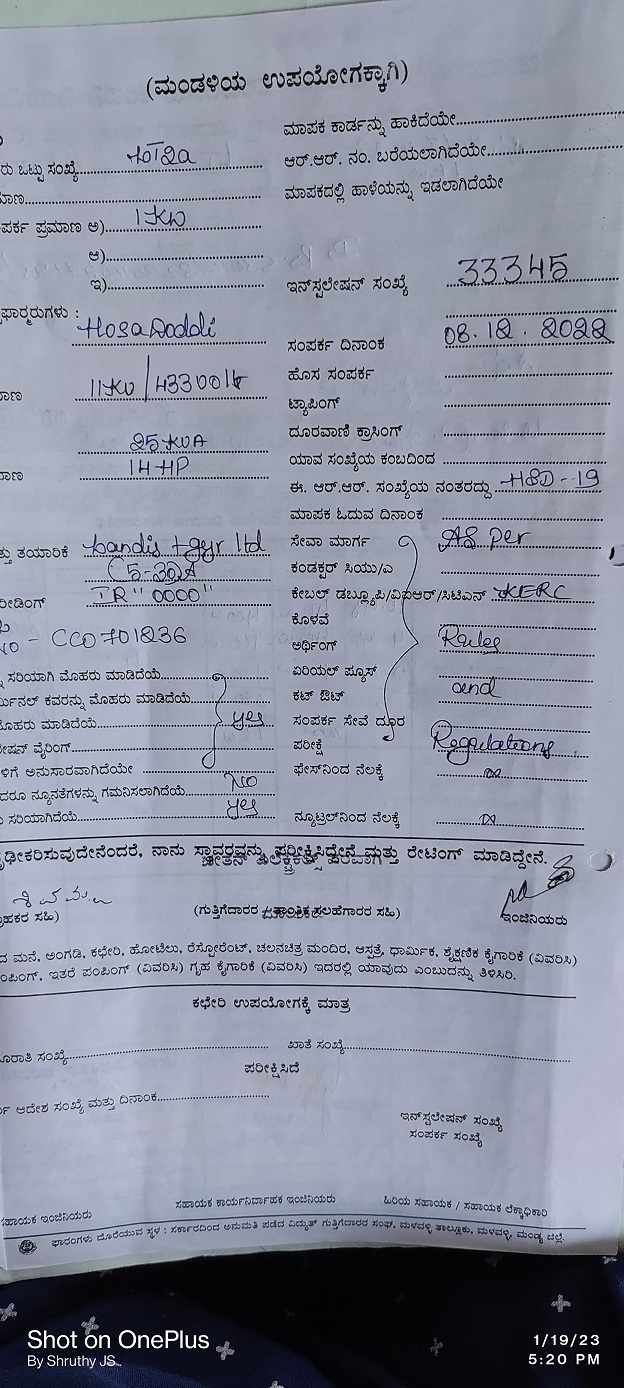 (ಮಂಡಳಿಯ ಉಪಯೋಗಕ್ಕಾಗಿ)
ಮಾಪಕ ಕಾರ್ಡನ್ನು ಹಾಕಿದೆಯೇ
ರು ಒಟ್ಟು ಸಂಖ್ಯೆ
ಆರ್.ಆರ್. ನಂ. ಬರೆಯಲಾಗಿದೆಯೇ
ಮಾಣ
ಮಾಪಕದಲ್ಲಿ ಹಾಳೆಯನ್ನು ಇಡಲಾಗಿದೆಯೇ
ಪರ್ಕ ಪ್ರಮಾಣ ಅ) 1 KW
ಆ)
ಇ)
ಇನ್‌ಸ್ಟಲೇಷನ್ ಸಂಖ್ಯೆ 33345
ಫಾರ್ಮರುಗಳು :
Hosa Doddi
ಸಂಪರ್ಕ ದಿನಾಂಕ 08.12.2022
ಹೊಸ ಸಂಪರ್ಕ
ಾಣ 11KV/433Volt
ಟ್ಯಾಪಿಂಗ್
25 KVA
ದೂರವಾಣಿ ಕ್ರಾಸಿಂಗ್
ಾಣ 14 HP
ಯಾವ ಸಂಖ್ಯೆಯ ಕಂಬದಿಂದ
ಈ. ಆರ್.ಆರ್. ಸಂಖ್ಯೆಯ ನಂತರದ್ದು HSD-19
ಮಾಪಕ ಓದುವ ದಿನಾಂಕ
ತ್ತು ತಯಾರಿಕೆ Landis + gyr ltd
ಸೇವಾ ಮಾರ್ಗ As per
C5-30A
ಕಂಡಕ್ಟರ್ ಸಿಯು/ಎ
ರೀಡಿಂಗ್ IR "0000"
ಕೇಬಲ್ ಡಬ್ಲ್ಯೂಪಿ/ವಿಐಆರ್/ಸಿಟಿಎಸ್ KERC
ಕೊಳವೆ
NO - CCO701236
ಅರ್ಥಿಂಗ್ Rules
ಸರಿಯಾಗಿ ಮೊಹರು ಮಾಡಿದೆಯೆ
ಏರಿಯಲ್ ಫ್ಯೂಸ್
ರ್ಮಿನಲ್ ಕವರನ್ನು ಮೊಹರು ಮಾಡಿದೆಯೆ
ಕಟ್ ಔಟ್ and
ಮೊಹರು ಮಾಡಿದೆಯೆ yes
ಸಂಪರ್ಕ ಸೇವೆ ದೂರ
ೇಷನ್ ವೈರಿಂಗ್
ಪರೀಕ್ಷೆ Regulations
ಳಿಗೆ ಅನುಸಾರವಾಗಿದೆಯೇ
ಫೇಸ್‌ನಿಂದ ನೆಲಕ್ಕೆ ∞
ದರೂ ನ್ಯೂನತೆಗಳನ್ನು ಗಮನಿಸಲಾಗಿದೆಯೆ No
ಸರಿಯಾಗಿದೆಯೆ yes
ನ್ಯೂಟ್ರಲ್‌ನಿಂದ ನೆಲಕ್ಕೆ ∞
ೃಢೀಕರಿಸುವುದೇನೆಂದರೆ, ನಾನು ಸ್ಥಾವರವನ್ನು ಪರೀಕ್ಷಿಸಿದ್ದೇನೆ ಮತ್ತು ರೇಟಿಂಗ್ ಮಾಡಿದ್ದೇನೆ.
ರಾಹಕರ ಸಹಿ)
(ಗುತ್ತಿಗೆದಾರರ ಸಹಿ)
ಇಂಜಿನಿಯರು
ದ ಮನೆ, ಅಂಗಡಿ, ಕಛೇರಿ, ಹೋಟಿಲು, ರೆಸ್ಟೋರೆಂಟ್, ಚಲನಚಿತ್ರ ಮಂದಿರ, ಆಸ್ಪತ್ರೆ, ಧಾರ್ಮಿಕ, ಶೈಕ್ಷಣಿಕ ಕೈಗಾರಿಕೆ (ವಿವರಿಸಿ)
ಂಪಿಂಗ್, ಇತರೆ ಪಂಪಿಂಗ್ (ವಿವರಿಸಿ) ಗೃಹ ಕೈಗಾರಿಕೆ (ವಿವರಿಸಿ) ಇದರಲ್ಲಿ ಯಾವುದು ಎಂಬುದನ್ನು ತಿಳಿಸಿರಿ.
ಕಛೇರಿ ಉಪಯೋಗಕ್ಕೆ ಮಾತ್ರ
ೂರಾತಿ ಸಂಖ್ಯೆ
ಖಾತೆ ಸಂಖ್ಯೆ
ಪರೀಕ್ಷಿಸಿದೆ
ಆದೇಶ ಸಂಖ್ಯೆ ಮತ್ತು ದಿನಾಂಕ
ಇನ್‌ಸ್ಟಲೇಷನ್ ಸಂಖ್ಯೆ
ಸಂಪರ್ಕ ಸಂಖ್ಯೆ
ಸಹಾಯಕ ಇಂಜಿನಿಯರು
ಸಹಾಯಕ ಕಾರ್ಯನಿರ್ವಾಹಕ ಇಂಜಿನಿಯರು
ಹಿರಿಯ ಸಹಾಯಕ / ಸಹಾಯಕ ಲೆಕ್ಕಾಧಿಕಾರಿ
ಫಾರಂಗಳು ದೊರೆಯುವ ಸ್ಥಳ : ಸರ್ಕಾರದಿಂದ ಅನುಮತಿ ಪಡೆದ ವಿದ್ಯುತ್ ಗುತ್ತಿಗೆದಾರರ ಸಂಘ, ಮಳವಳ್ಳಿ ತಾಲ್ಲೂಕು, ಮಳವಳ್ಳಿ, ಮಂಡ್ಯ ಜಿಲ್ಲೆ.
Shot on OnePlus
By Shruthy JS..
1/19/23
5:20 PM